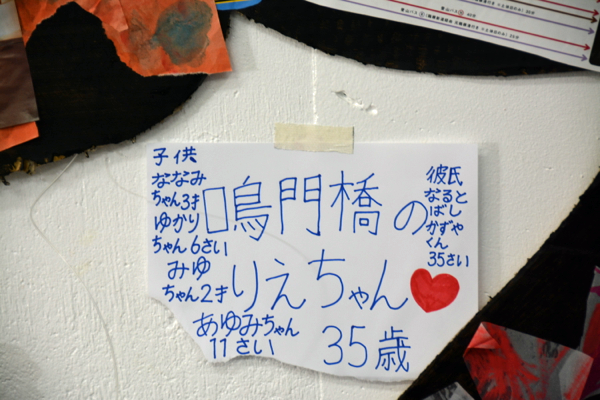 子供
ななみ
ちゃん3才
ゆかり
ちゃん6さい
みゆ
ちゃん2才
あゆみちゃん
11さい
鳴門橋の
りえちゃん
35歳
彼氏
なると
ばし
かずや
くん
35さい